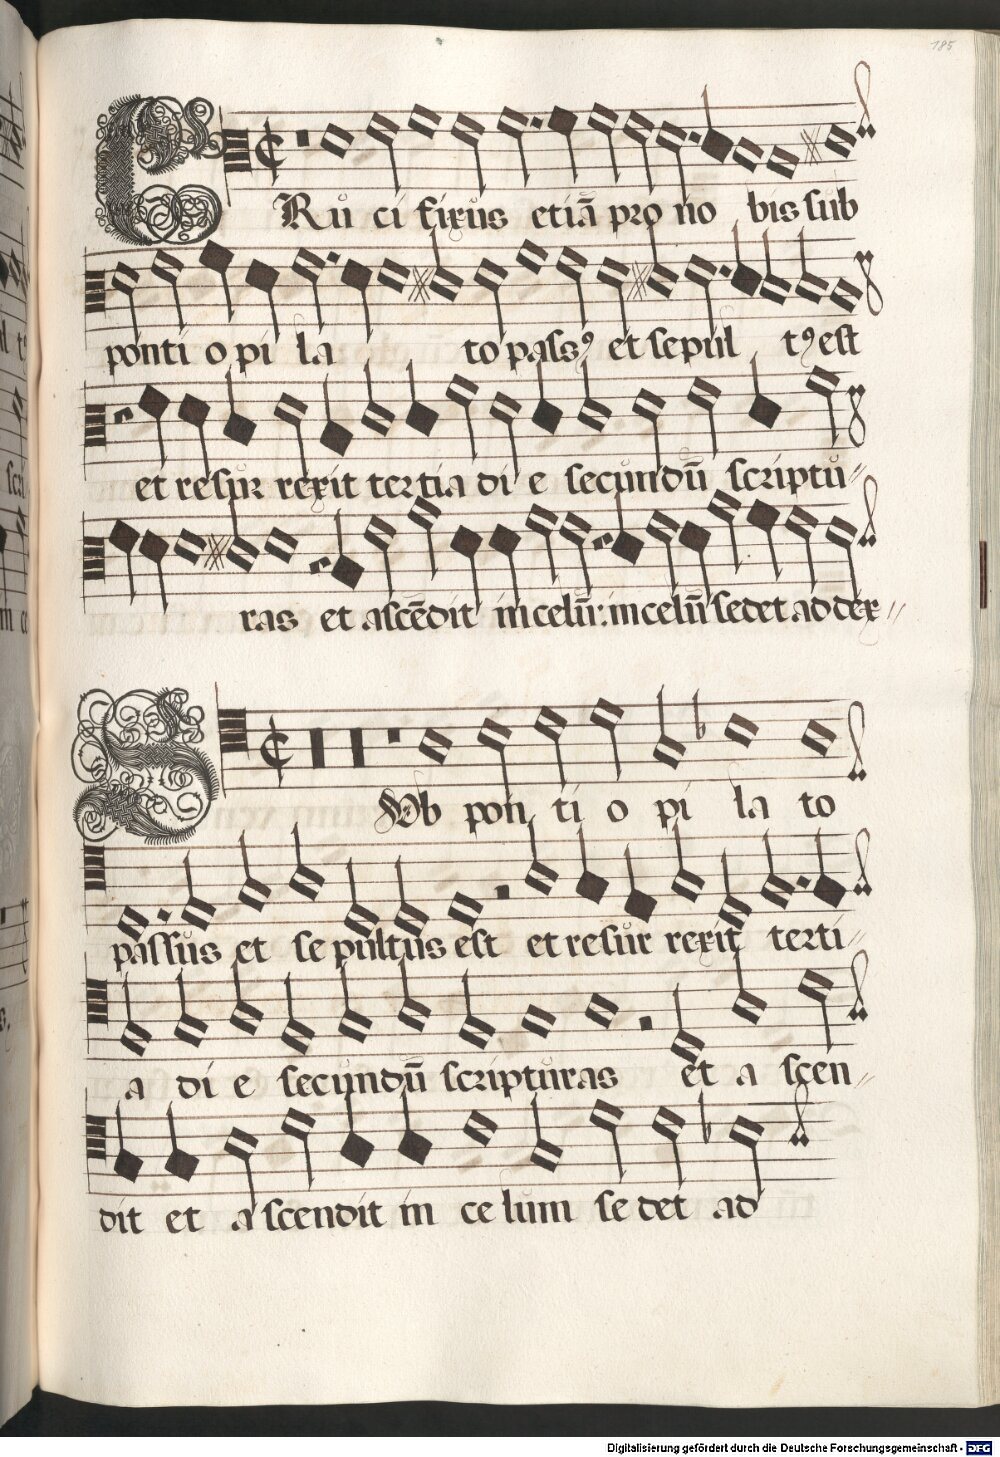 185
CRu ci fixus etiā pro no bis sub
ponti o pi la to passꝰ et sepul tꝰ est
et resur rexit tertia di e secundū scriptu
ras et ascēdit in celū: in celū sedet ad dex
Sub pon ti o pi la to
passus et se pultus est et resur rexit terti
a di e secundū scripturas et a scen
dit et a scendit in ce lum se det ad
Digitalisierung gefördert durch die Deutsche Forschungsgemeinschaft - DFG